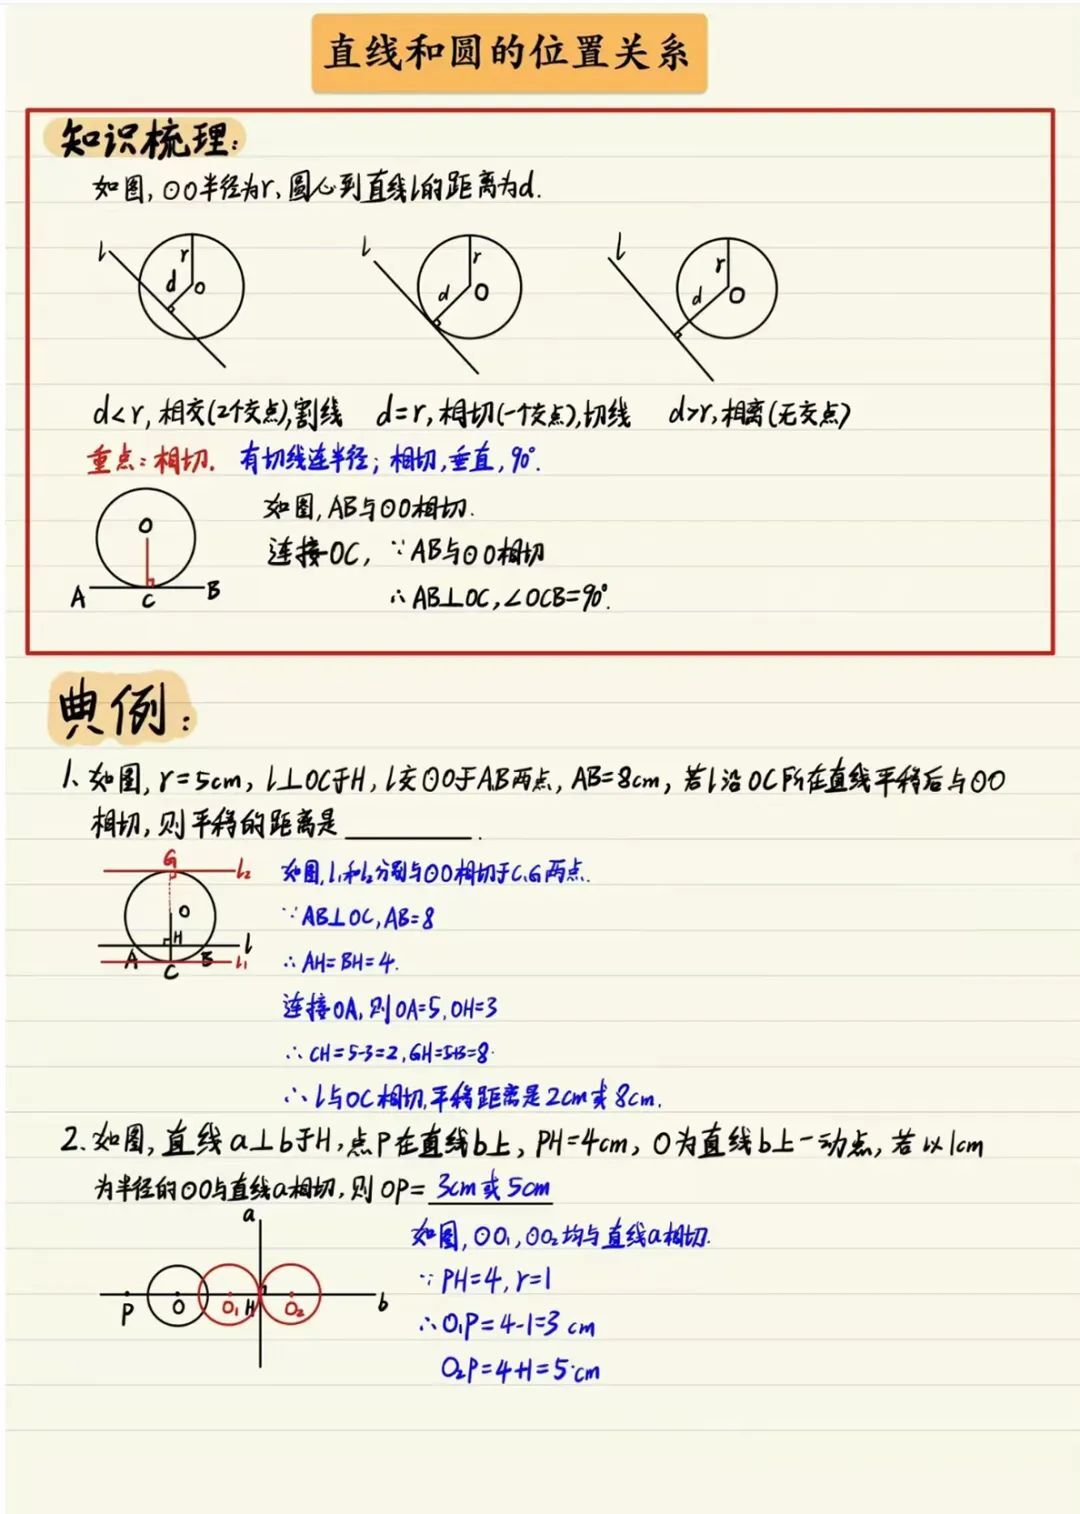 直线和圆的位置关系
知识梳理:
如图,⊙O半径为r,圆心到直线l的距离为d.
l r d O
l r d O
l r d O
d<r,相交(2个交点),割线 d=r,相切(一个交点),切线 d>r,相离(无交点)
重点:相切. 有切线连半径;相切,垂直,90°.
O A C B
如图,AB与⊙O相切.
连接OC,∵AB与⊙O相切
∴AB⊥OC,∠OCB=90°.
典例:
1、如图,r=5cm,l⊥OC于H,l交⊙O于A,B两点,AB=8cm,若l沿OC所在直线平移后与⊙O
相切,则平移的距离是________.
G l₂ O H l A B l₁ C
如图,l₁和l₂分别与⊙O相切于C,G两点.
∵AB⊥OC,AB=8
∴AH=BH=4.
连接OA,则OA=5,OH=3
∴CH=5-3=2,GH=5+3=8.
∴l与OC相切,平移距离是2cm或8cm.
2.如图,直线a⊥b于H,点P在直线b上,PH=4cm,O为直线b上一动点,若以1cm
为半径的⊙O与直线a相切,则OP=3cm或5cm
a P O O₁ H O₂ b
如图,⊙O₁,⊙O₂均与直线a相切.
∵PH=4,r=1
∴O₁P=4-1=3cm
O₂P=4+1=5cm